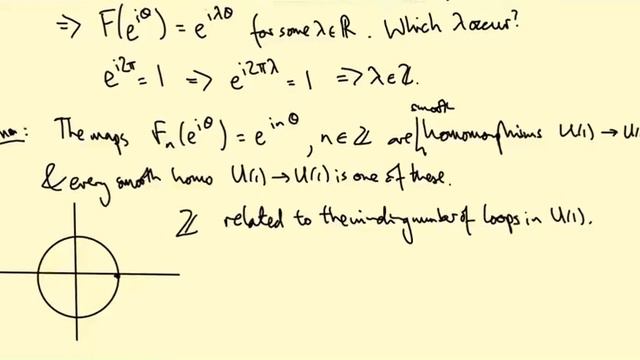 ⇒ F(e^{iθ}) = e^{iλθ} for some λ∈ℝ. Which λ occur?
e^{i2π} = 1 ⇒ e^{i2πλ} = 1 ⇒ λ∈ℤ.
smooth
The maps F_n(e^{iθ}) = e^{inθ}, n∈ℤ are homomorphisms U(1) → U(
& every smooth homo U(1) → U(1) is one of these.
ℤ related to the winding number of loops in U(1).